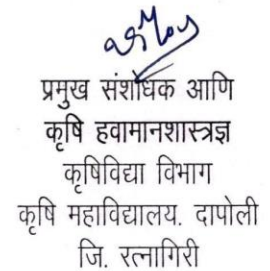 प्रमुख संशोधक आणि
कृषि हवामानशास्त्रज्ञ
कृषिविद्या विभाग
कृषि महाविद्यालय. दापोली
जि. रत्नागिरी